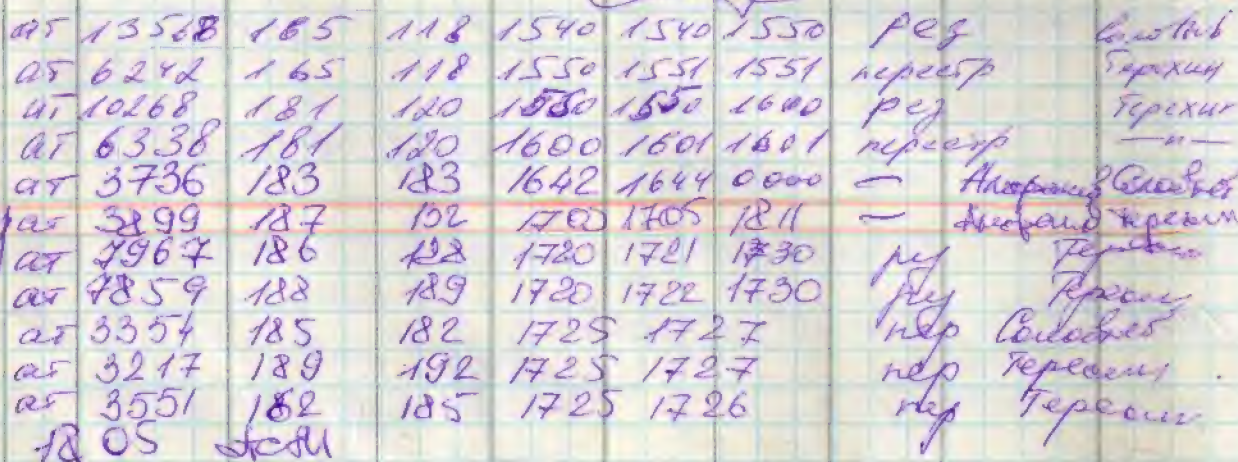 ат 13568 165 118 1540 1540 1550 рез Соловьёв
ат 6242 165 118 1550 1551 1551 перестр Терехин
ат 10268 181 120 1550 1550 1600 рез Терехин
ат 6338 181 120 1600 1601 1601 перестр —"—
ат 3736 183 183 1642 1644 0000 — Соловьёв
ат 3899 187 132 1700 1705 1811 — Терехин
ат 7967 186 128 1720 1721 1730 рез Терехин
ат 7859 188 189 1720 1722 1730 рез Терехин
ат 3354 185 182 1725 1727 пер Соловьёв
ат 3217 189 192 1725 1727 пер Терехин
ат 3551 182 185 1725 1726 пер Терехин
18 05